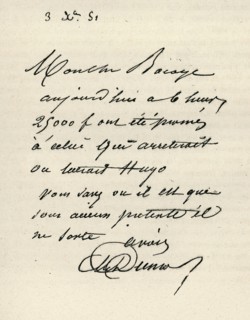 3 Xbre 51
Monsieur Bocage
aujourd'hui à 6 heures
25000 f ont été promis
à celui qui arrêterait
ou tuerait Hugo
Vous savez où il est que
sous aucun prétexte il
ne sorte
à vous
Al Dumas